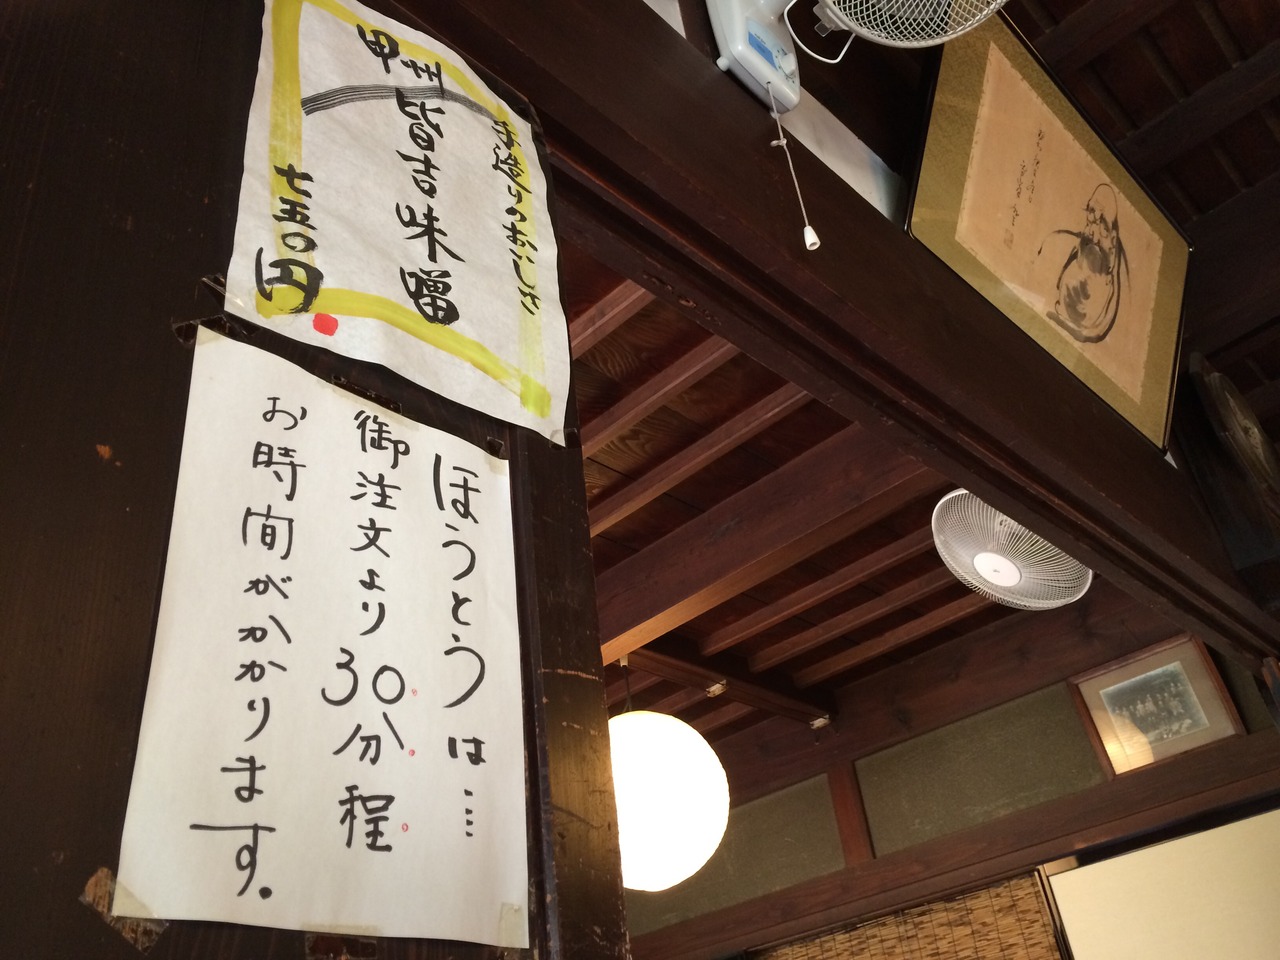 手造りのおいしさ
甲州皆吉味噌
七五〇円
ほうとうは…
御注文より
30分程
お時間がかかります。